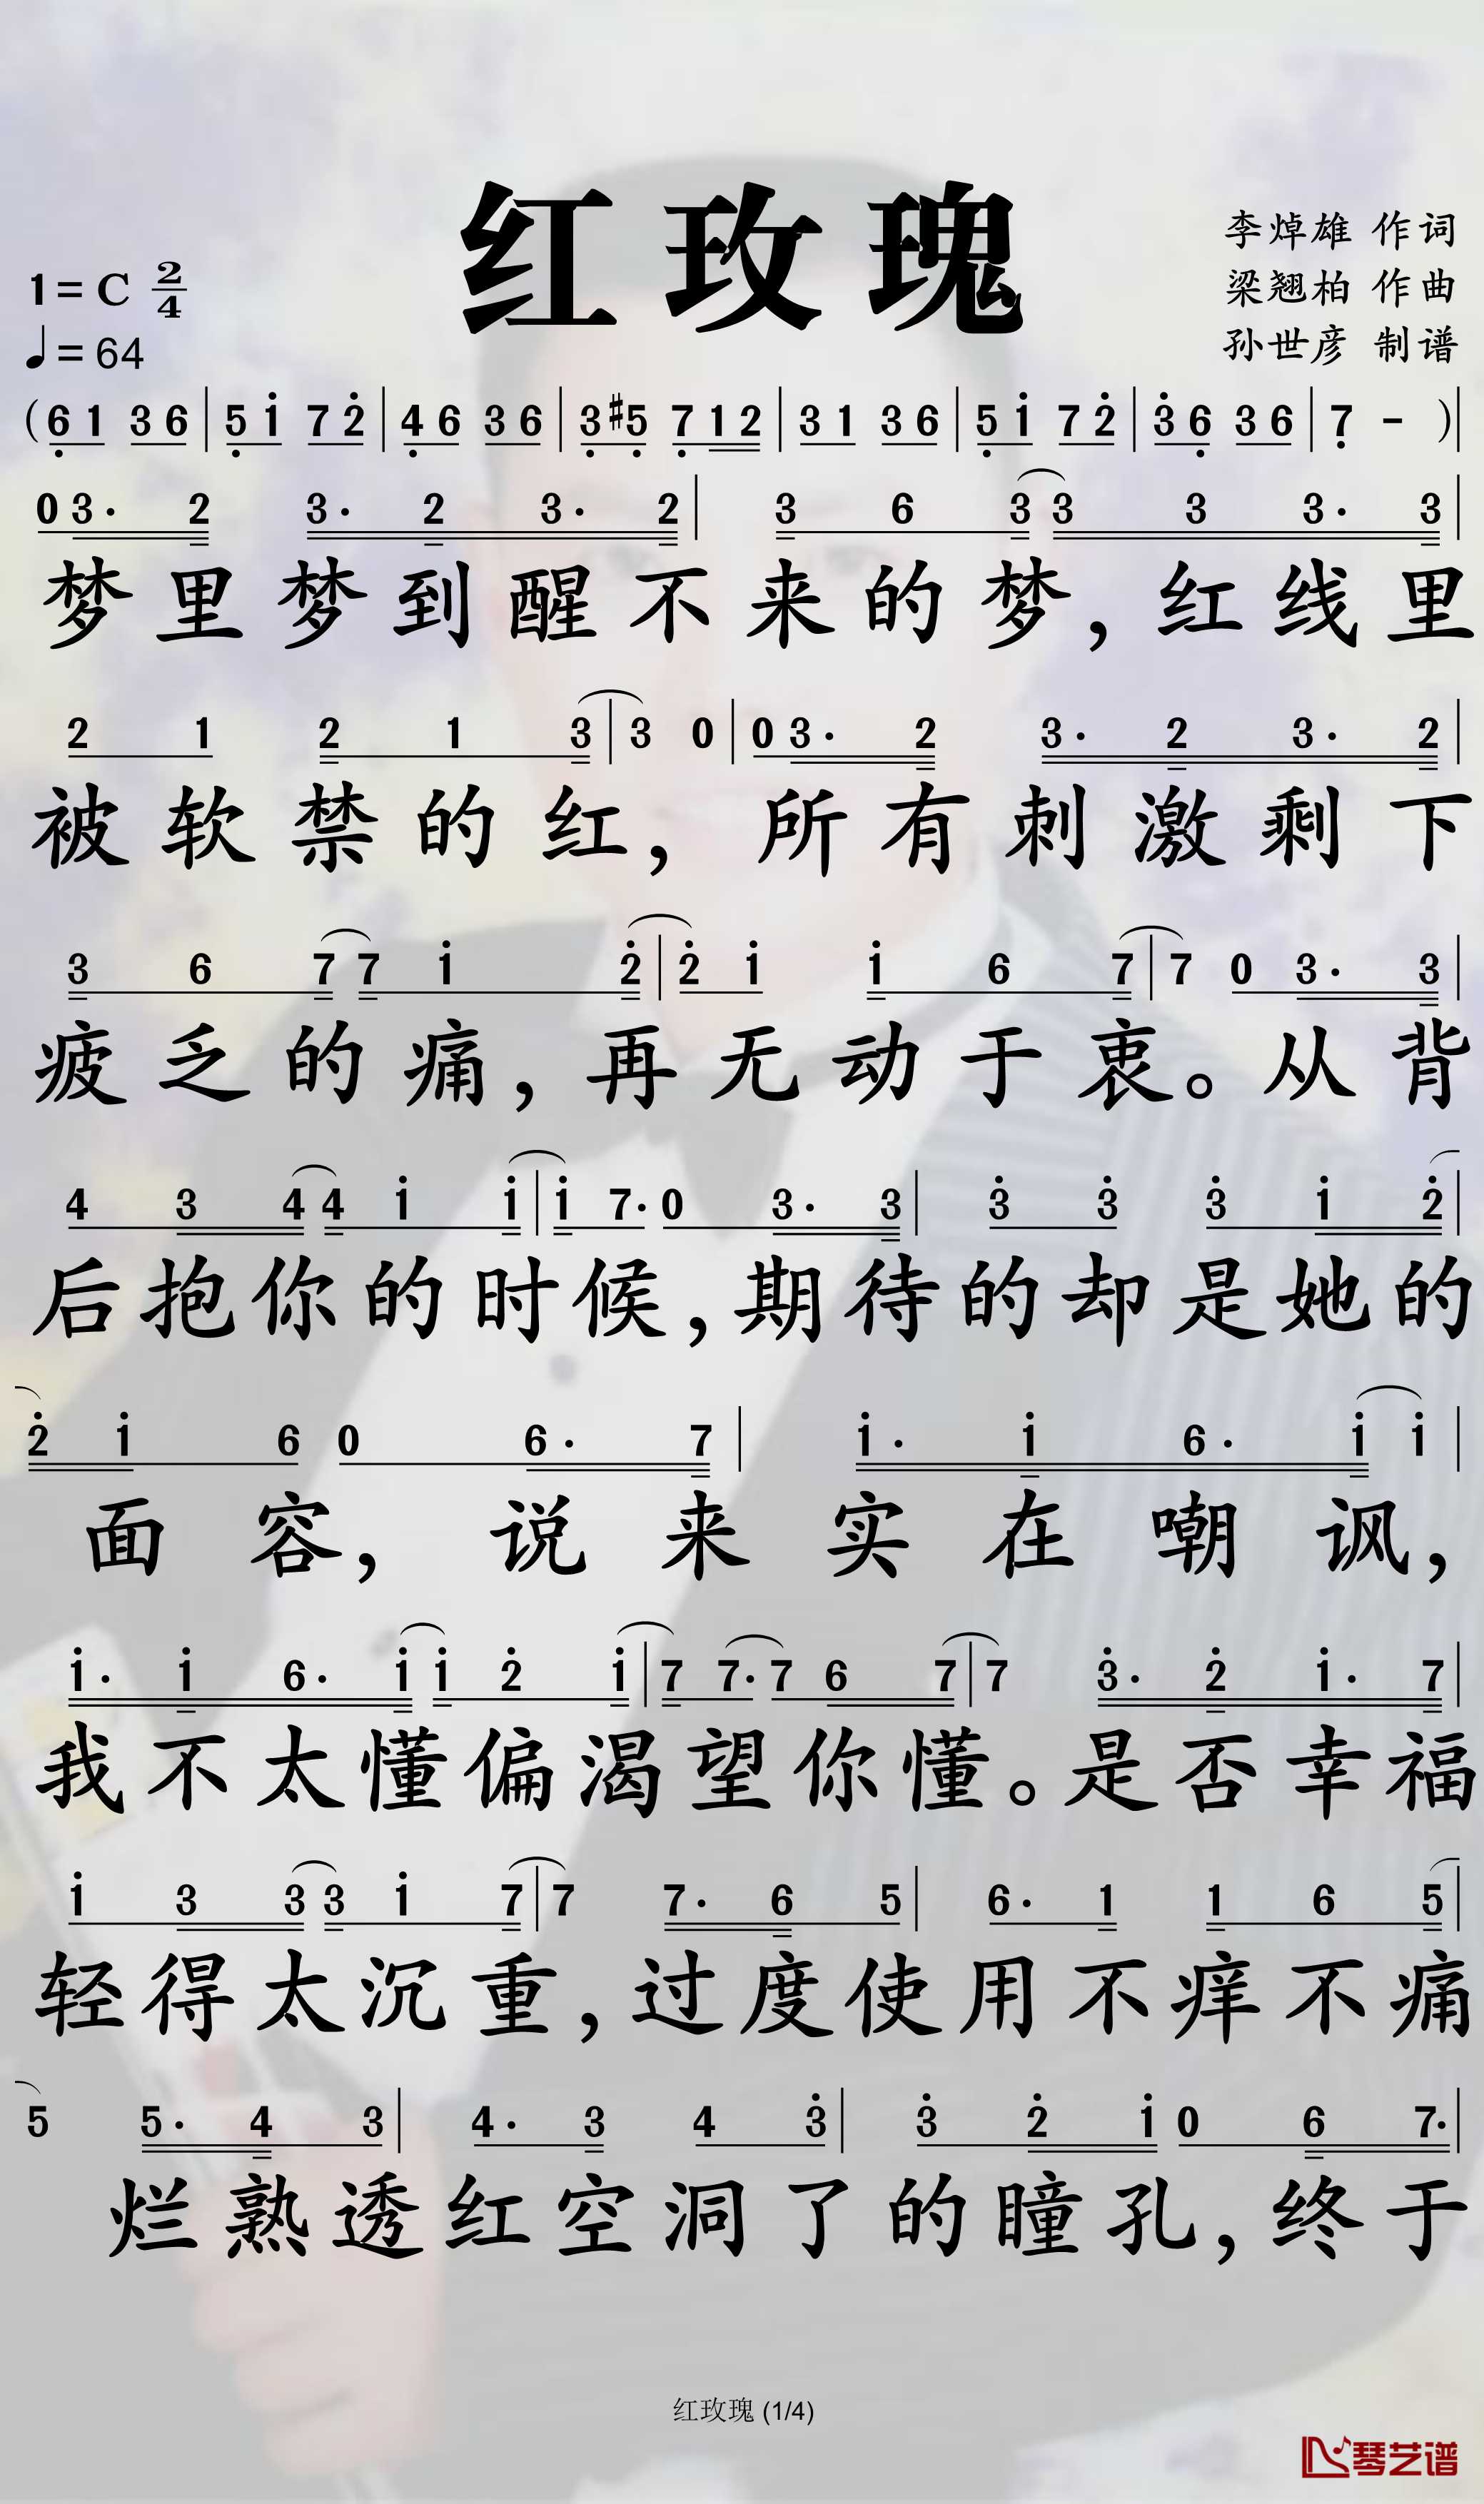 红玫瑰
李焯雄 作词
梁翘柏 作曲
孙世彦 制谱
1=C 2/4
♩=64
(6̣ 1 3 6 | 5̣ 1̇ 7 2̇ | 4̣ 6 3 6 | 3̣ #5̣ 7̣ 1 2 | 3 1 3 6 | 5̣ 1̇ 7 2̇ | 3̇ 6̣ 3 6 | 7̣ - )|
0 3· 2 3· 2 3· 2 | 3 6 3 3 3 3· 3 |
梦里梦到醒不来的梦,红线里
2 1 2 1 3 | 3 0 | 0 3· 2 3· 2 3· 2 |
被软禁的红,所有刺激剩下
3 6 7 7 1̇ 2̇ | 2̇ 1̇ 1̇ 6 7 | 7 0 3· 3 |
疲乏的痛,再无动于衷。从背
4 3 4 4 1̇ 1̇ | 1̇ 7· 0 3· 3 | 3̇ 3̇ 3̇ 1̇ 2̇ |
后抱你的时候,期待的却是她的
2̇ 1̇ 6 0 6· 7 | 1̇· 1̇ 6· 1̇ 1̇ |
面容,说来实在嘲讽,
1̇· 1̇ 6· 1̇ 1̇ 2̇ 1̇ | 7 7· 7 6 7 | 7 3̇· 2̇ 1̇· 7 |
我不太懂偏渴望你懂。是否幸福
1̇ 3 3 3 1̇ 7 | 7 7· 6 5 | 6· 1 1 6 5 |
轻得太沉重,过度使用不痒不痛
5 5· 4 3 | 4· 3 4 3̇ | 3̇ 2̇ 1̇ 0 6 7· |
烂熟透红空洞了的瞳孔,终于
红玫瑰 (1/4)
琴艺谱